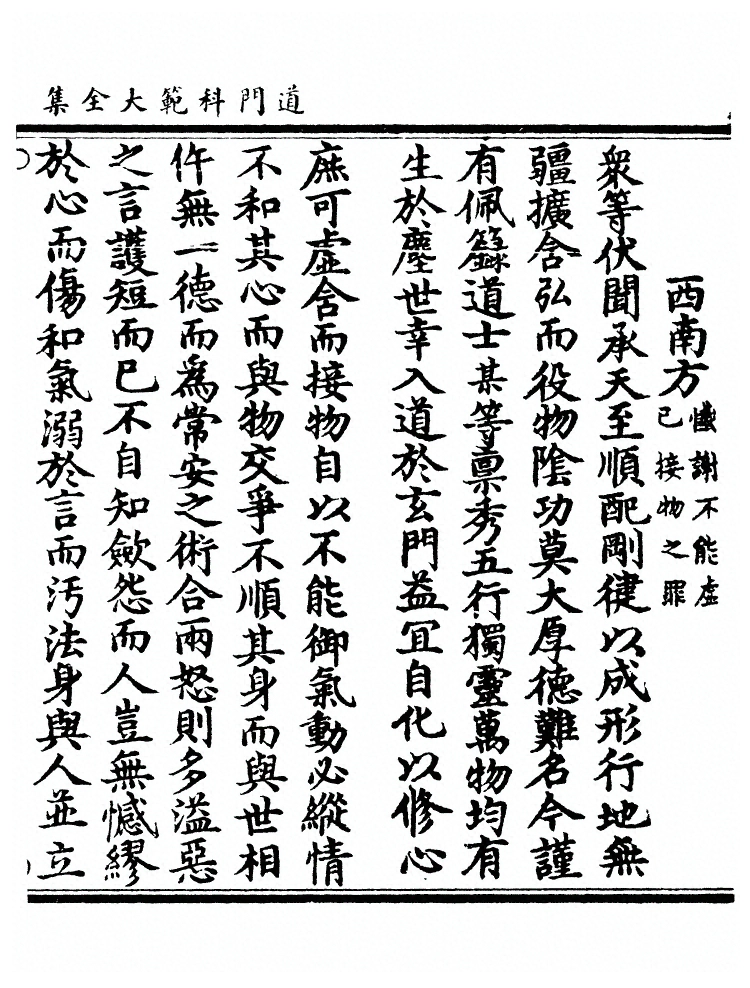 道門科範大全集
西南方懺謝不能虛
已接物之罪
衆等伏聞承天至順配剛健以成形行地無
疆擴含弘而役物陰功莫大厚德難名今謹
有佩籙道士某等禀秀五行獨靈萬物均有
生於塵世幸入道於玄門益宜自化以修心
庶可虛舍而接物自以不能御氣動必縱情
不和其心而與物交爭不順其身而與世相
仵無一德而爲常安之術合兩怒則多溢惡
之言護短而已不自知斂怨而人豈無憾繆
於心而傷和氣溺於言而汚法身與人並立